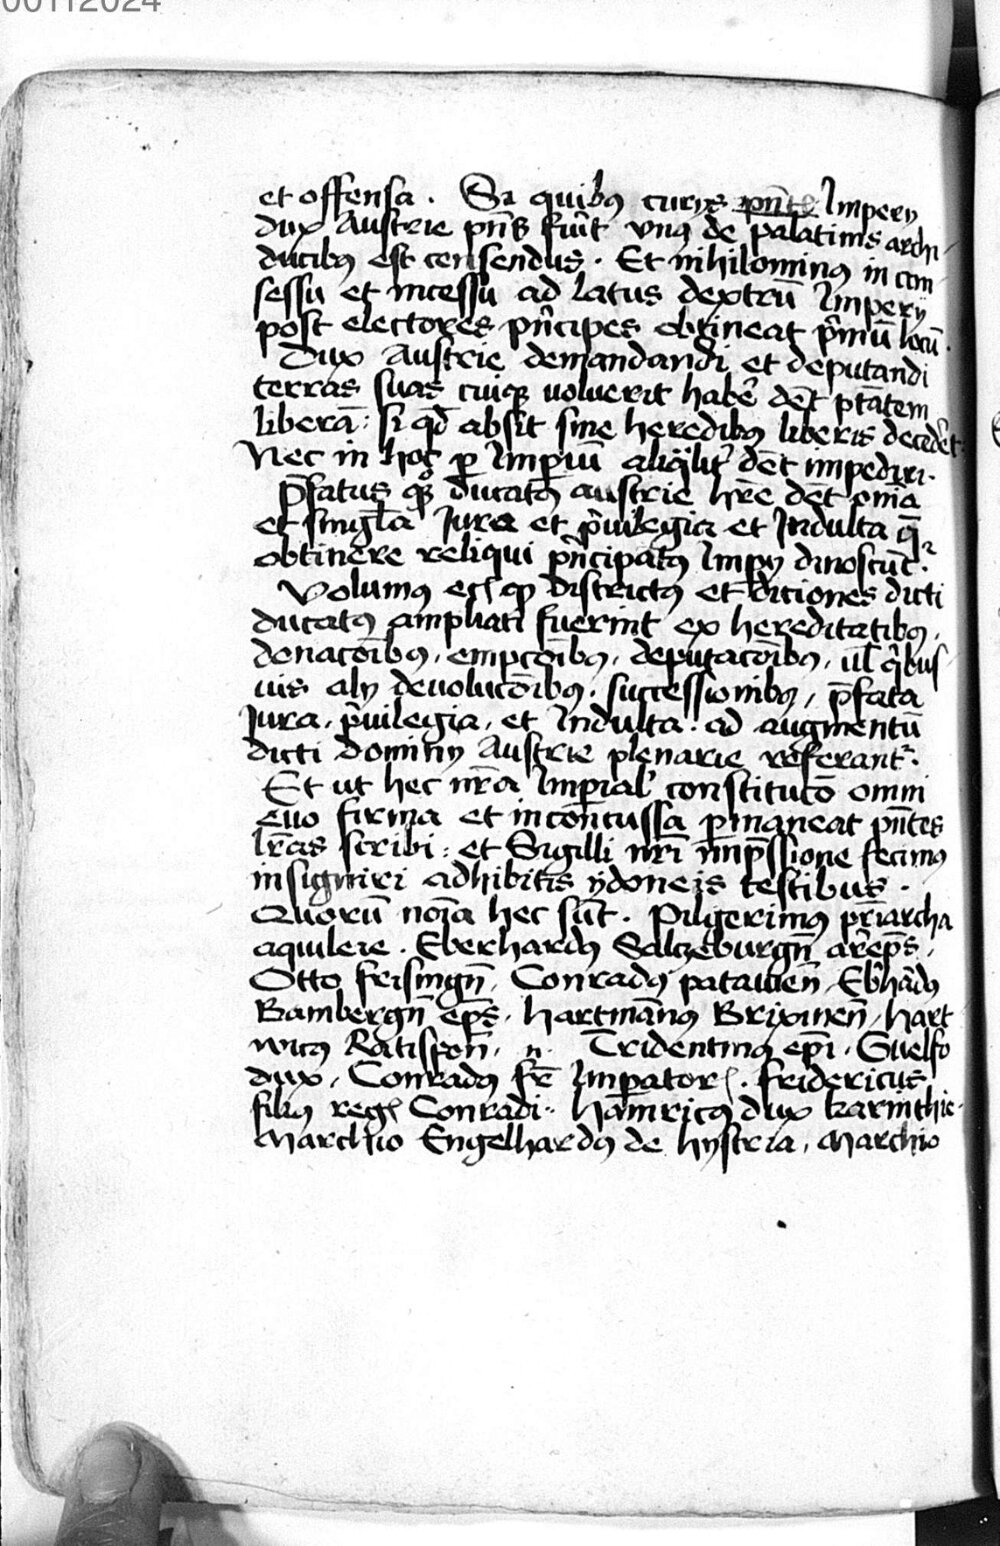 00112024
et offensa . Si quibꝰ curys pn̄te Impery
dux Austrie pn̄s fuīt vnꝰ de palatinis archi-
ducibꝰ est censendus . Et nihilominꝰ in con-
sessu et incessu ad latus dextrū Impery
post electores pn̄cipes obtineat p̄mū locū .
Dux Austrie demandandi et deputandi
terras suas cuiqꝫ uoluerit habē dēt ptātem
liberā : si qd̄ absit sine heredibꝰ liberis decedet
Nec in hoc ꝑ Imꝑiū aliqlit' dēt impediri .
P̄fatus qꝫ ducatꝰ austrie hr̄e dēt om̄ia
et singl̄a Iura et p̄uilegia et Indulta q̄
obtinere reliqui pn̄cipatꝰ Impy dinoscūt' .
Volumꝰ eciā qꝫ districtꝰ et diciones dicti
ducatꝰ ampliati fuerint ex hereditatibꝰ ,
donacōibꝰ , empcōibꝰ , deputacōibꝰ , ul̄ q̄bus-
uis alȳ deuolucōibꝰ . successionibꝰ , p̄fata
Iura , p̄uilegia , et Indulta . ad augmentū
dicti dominy Austrie plenarie referant' .
Et ut hec nr̄a Imꝑial' constitucō omni
euo firma et inconcussa ꝑmaneat pn̄tes
lr̄as scribi : et Sigilli nr̄i imp̄ssione fecimꝰ
insigniri adhibitis ydoneis testibus .
Quorū noīa hec sūt . Piligerimꝰ pr̄iarcha
aquileie . Eberhardꝰ Salczeburgn̄ ar̄ep̄s ,
Otto frisingn̄ , Conradꝰ patauien̄ , Eb̄hādꝰ
Bambergn̄ ep̄s , hartmānꝰ Brixinen̄ , hart
wicꝰ Ratispon̄ , n . Tridentinꝰ ep̄i . Guelfo
dux , Conradꝰ fr̄ Imꝑatoris . fridericus
filiꝰ regis Conradi .. hainricꝰ dux karinthie .
Marchio Engelhardꝰ de hystria , Marchio